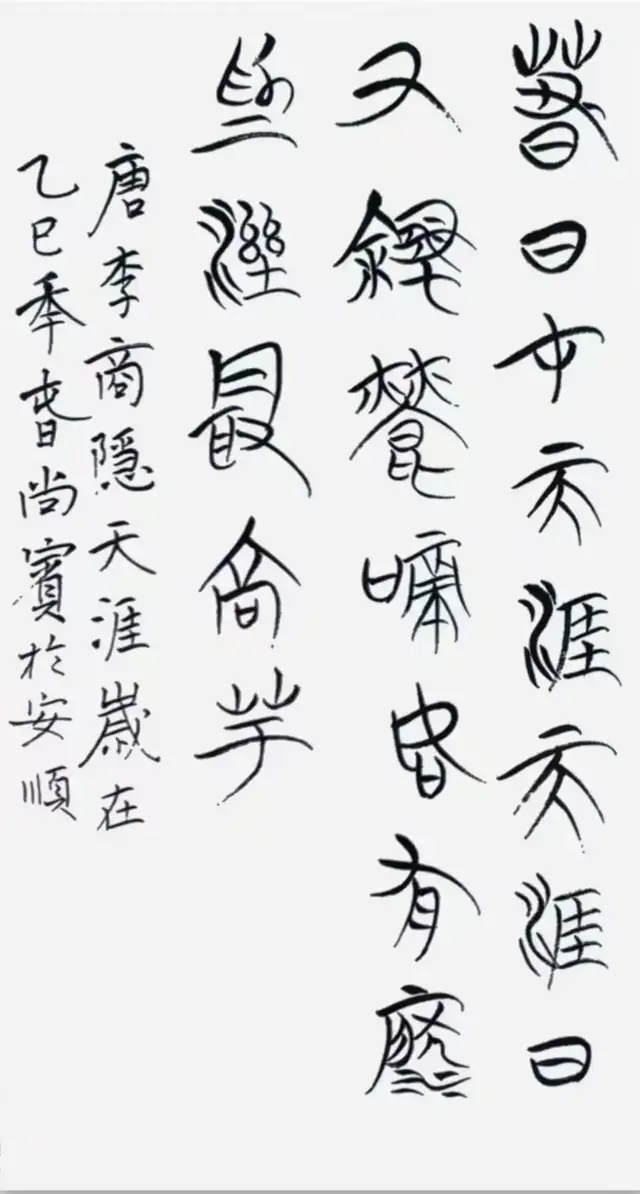 春日在天涯天涯日
又斜鶯啼如有淚
為濕最高花
唐李商隱天涯歲在
乙巳季春尚賓於安順